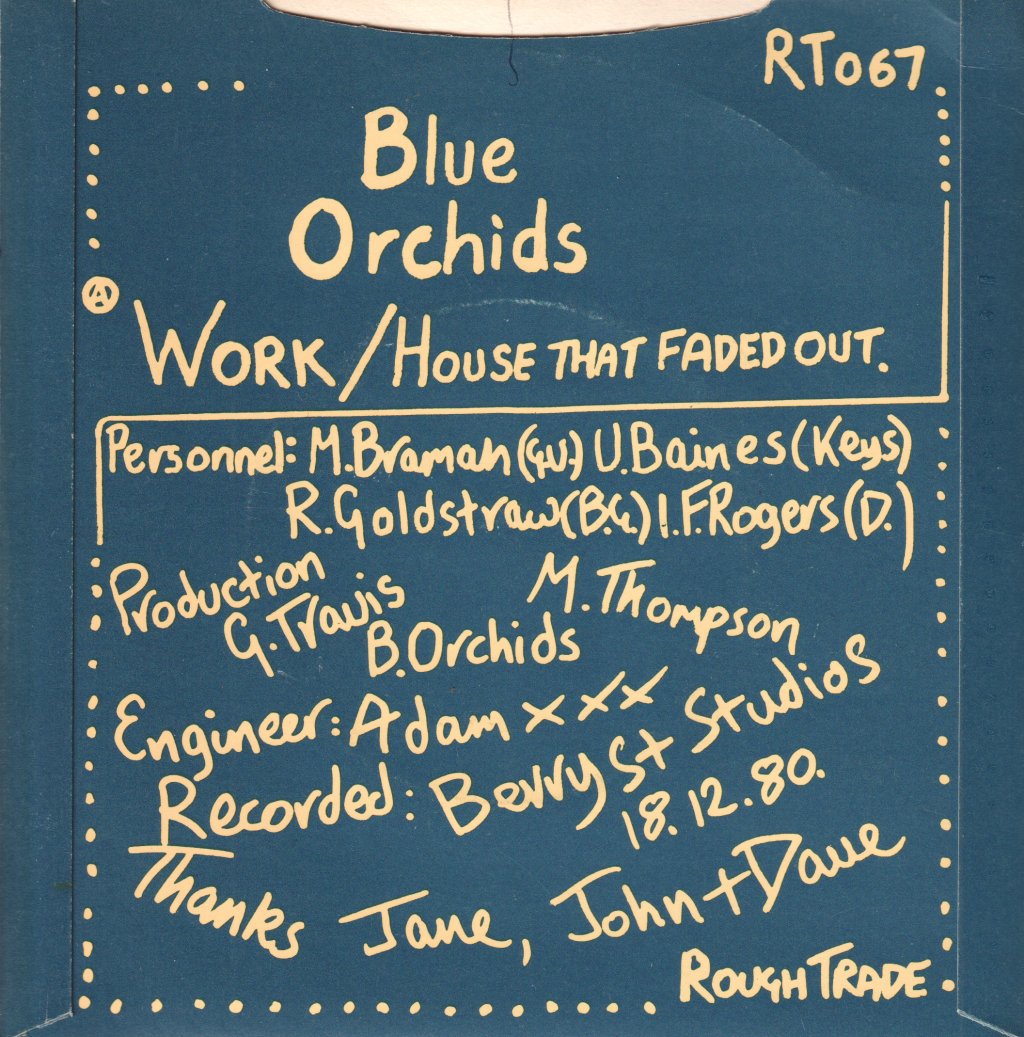 RT067
Blue
Orchids
Ⓐ
WORK/HOUSE THAT FADED OUT.
Personnel: M.Bramah(G.V.) U.Baines(Keys)
R.Goldstraw(B.G.) I.F.Rogers(D.)
Production
G.Travis
M.Thompson
B.Orchids
Engineer: Adam xxx
Recorded: Berry St Studios
18.12.80.
Thanks Jane, John+Dave
ROUGH TRADE